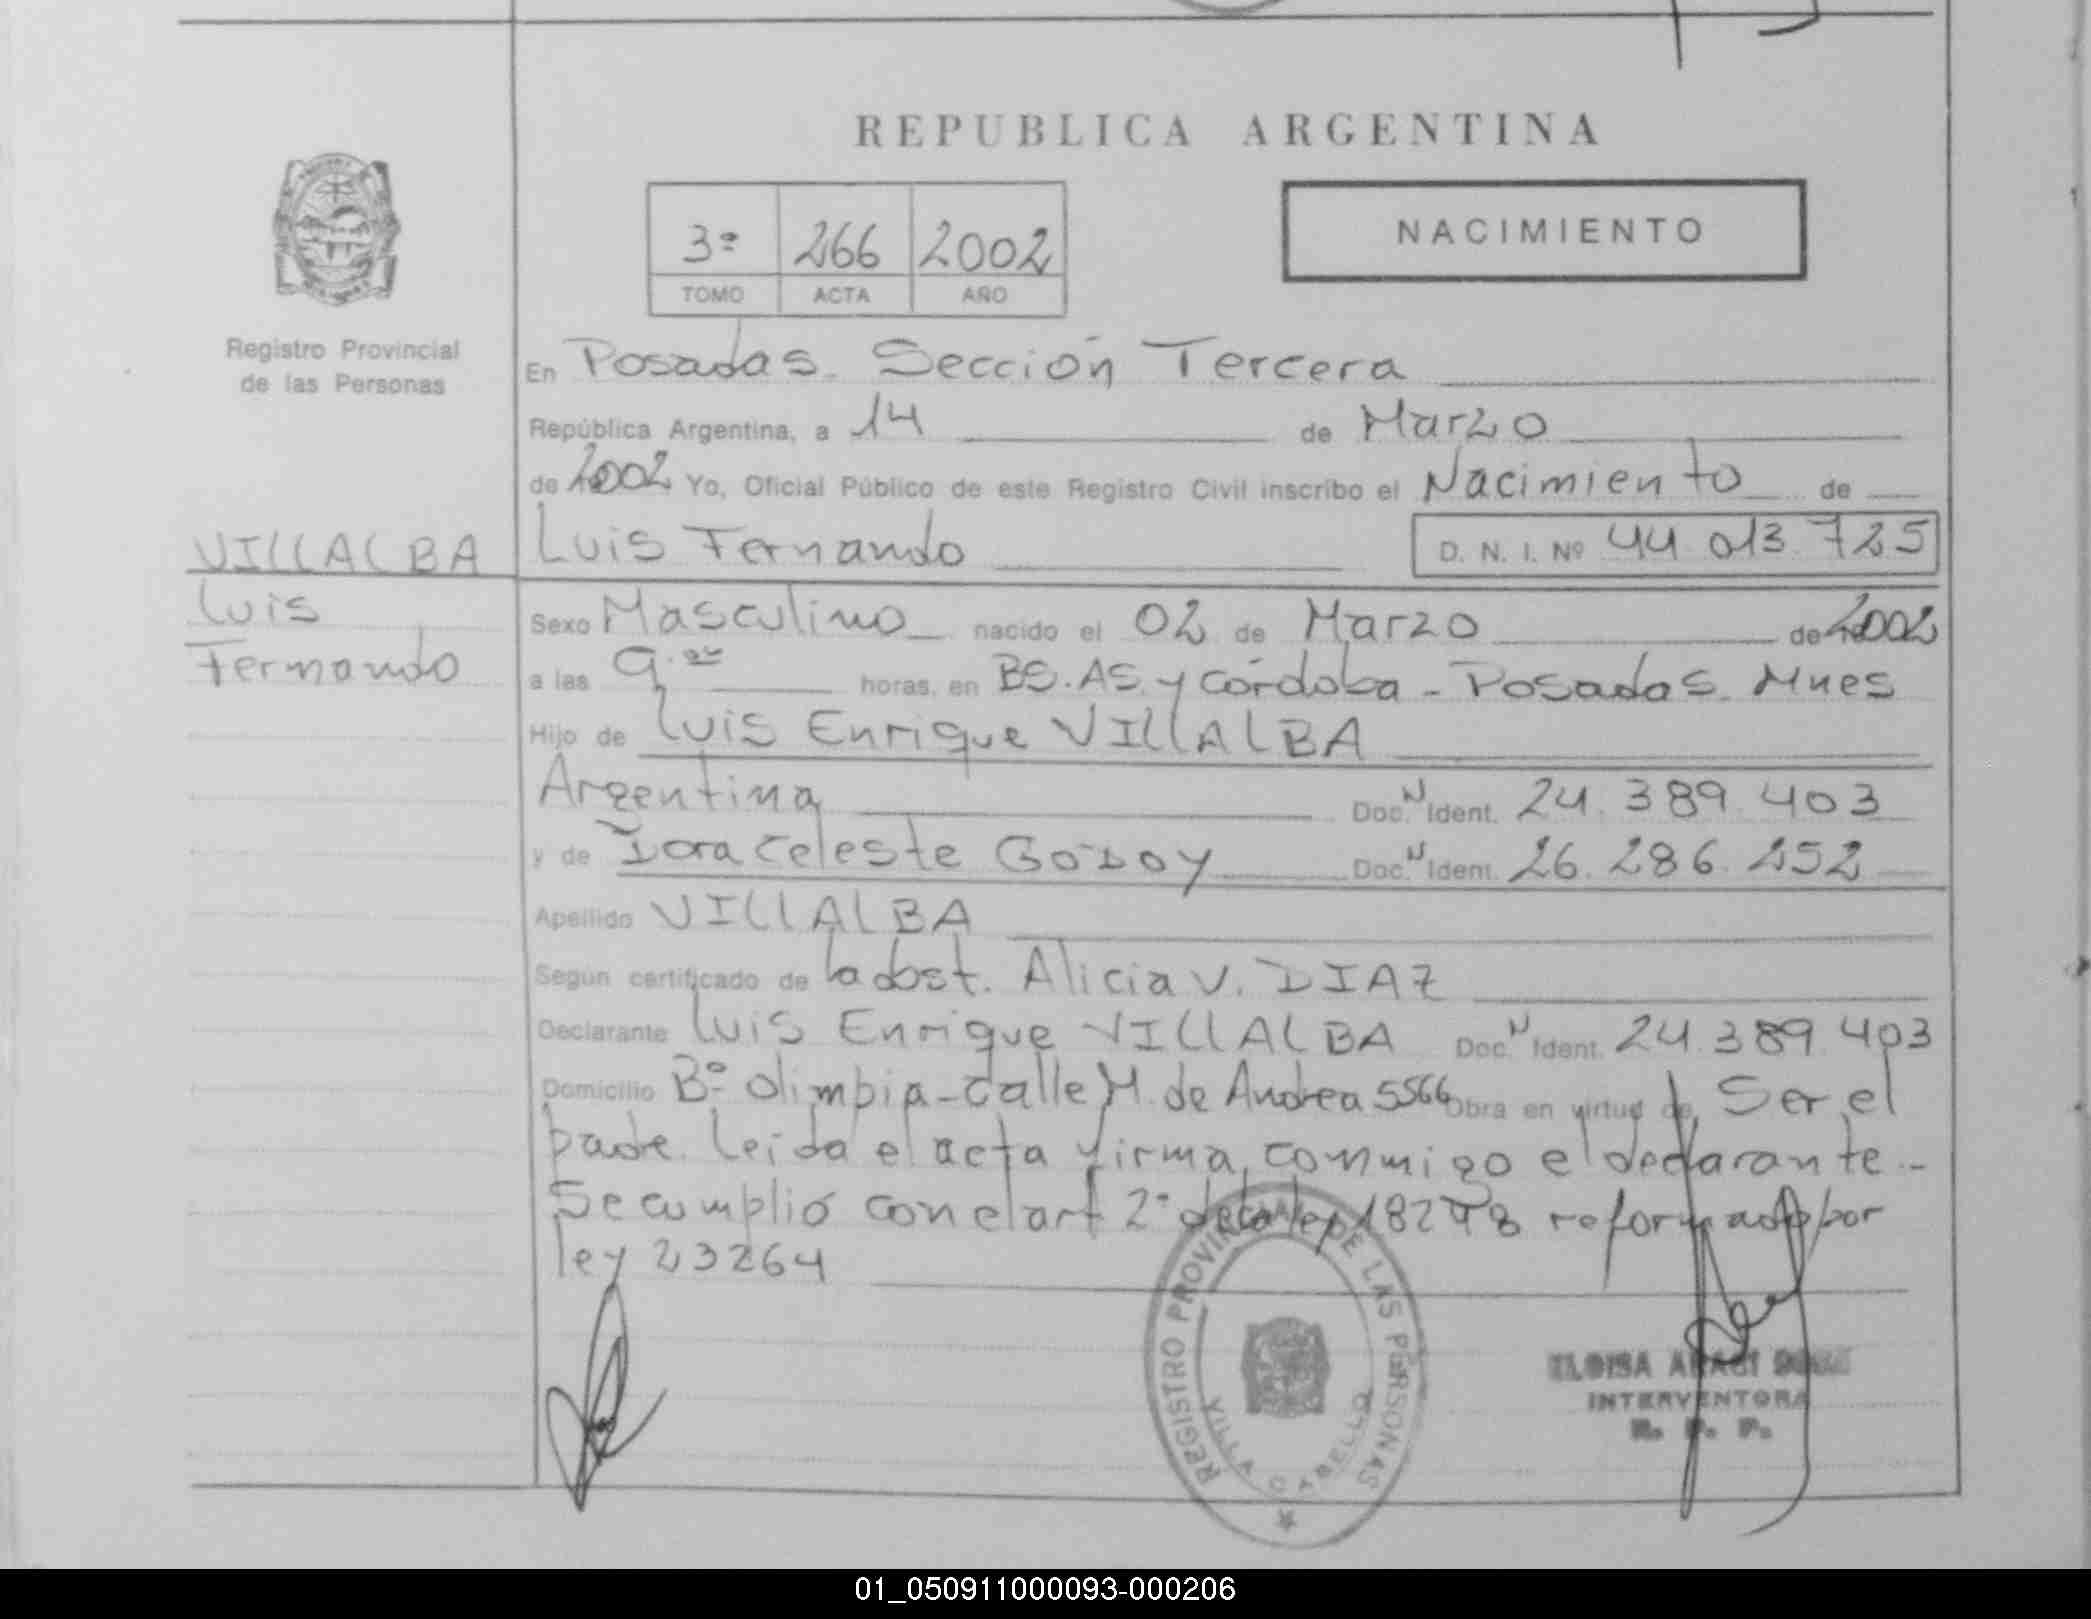 REPUBLICA ARGENTINA
3ª 266 2002
TOMO ACTA AÑO
NACIMIENTO
Registro Provincial
de las Personas
En Posadas. Sección Tercera
República Argentina, a 14 de Marzo
de 2002 Yo, Oficial Público de este Registro Civil inscribo el Nacimiento de
VILLALBA Luis Fernando D. N. I. Nº 44 013 725
Luis
Fernando
Sexo Masculino nacido el 02 de Marzo de 2002
a las 9. horas, en BS. AS. y Córdoba - Posadas. Mnes
Hijo de Luis Enrique VILLALBA
Argentina Doc. N Ident. 24. 389. 403
y de Dora Celeste GODOY Doc. N Ident. 26. 286. 252
Apellido VILLALBA
Según certificado de la obst. Alicia V. DIAZ
Declarante Luis Enrique VILLALBA Doc. N Ident. 24. 389. 403
Domicilio Bº Olimpia - Calle M. de Andrea 5566 Obra en virtud de Ser el
padre. Leida el acta firma conmigo el declarante.-
Se cumplió con el art 2º de la ley 18248 reformado por
ley 23264
REGISTRO PROVINCIAL DE LAS PERSONAS
VILLA
ELOISA
INTERVENTORA
R. P. P.
01_050911000093-000206